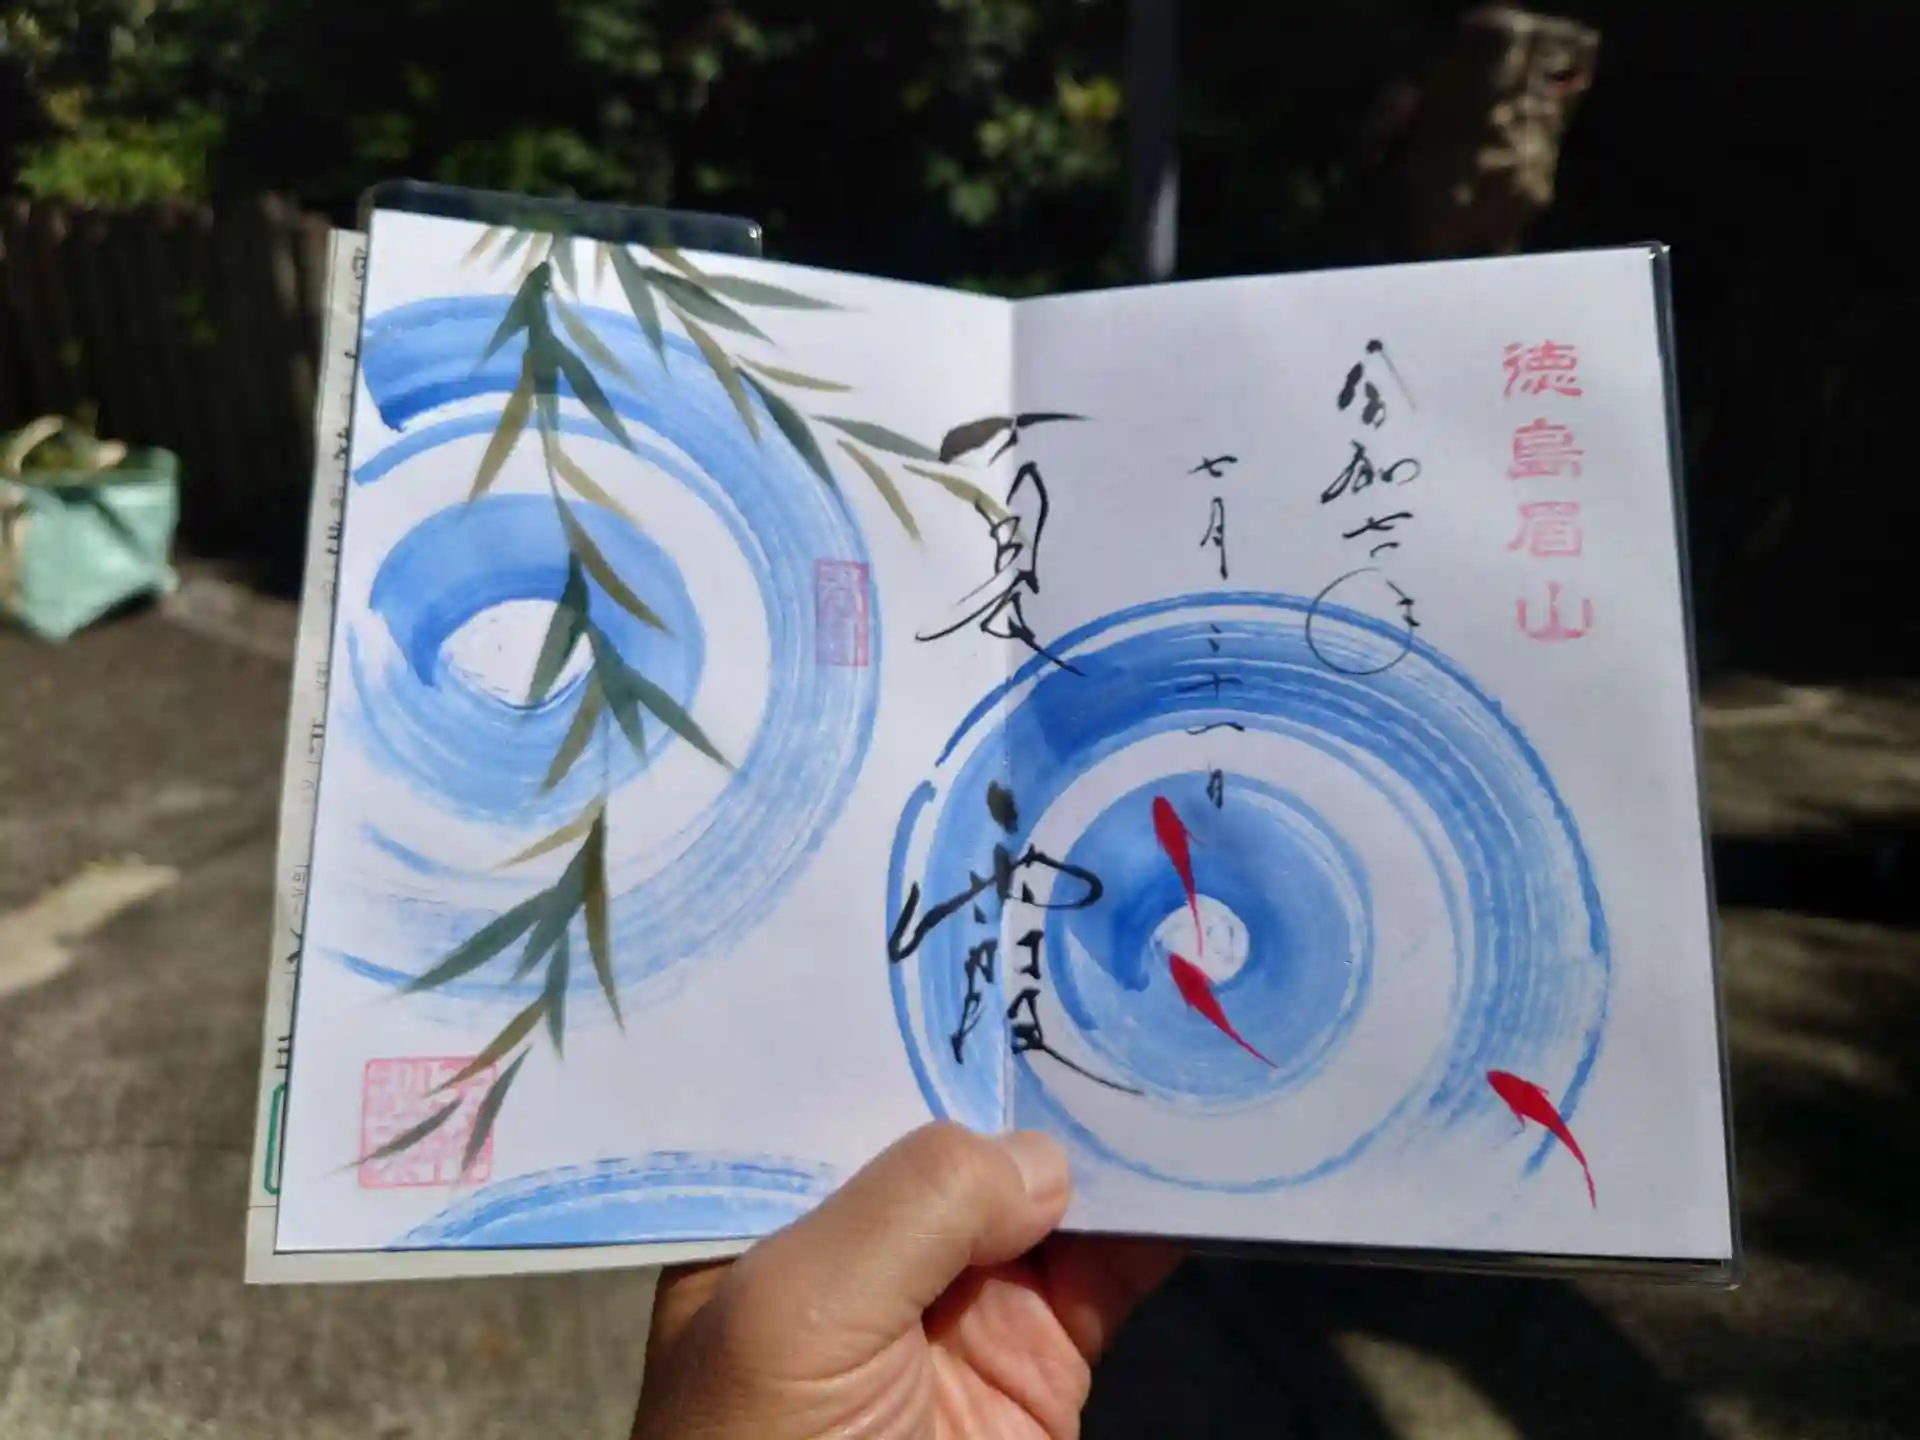 徳島眉山
令和七年
七月三十一日
夏霞